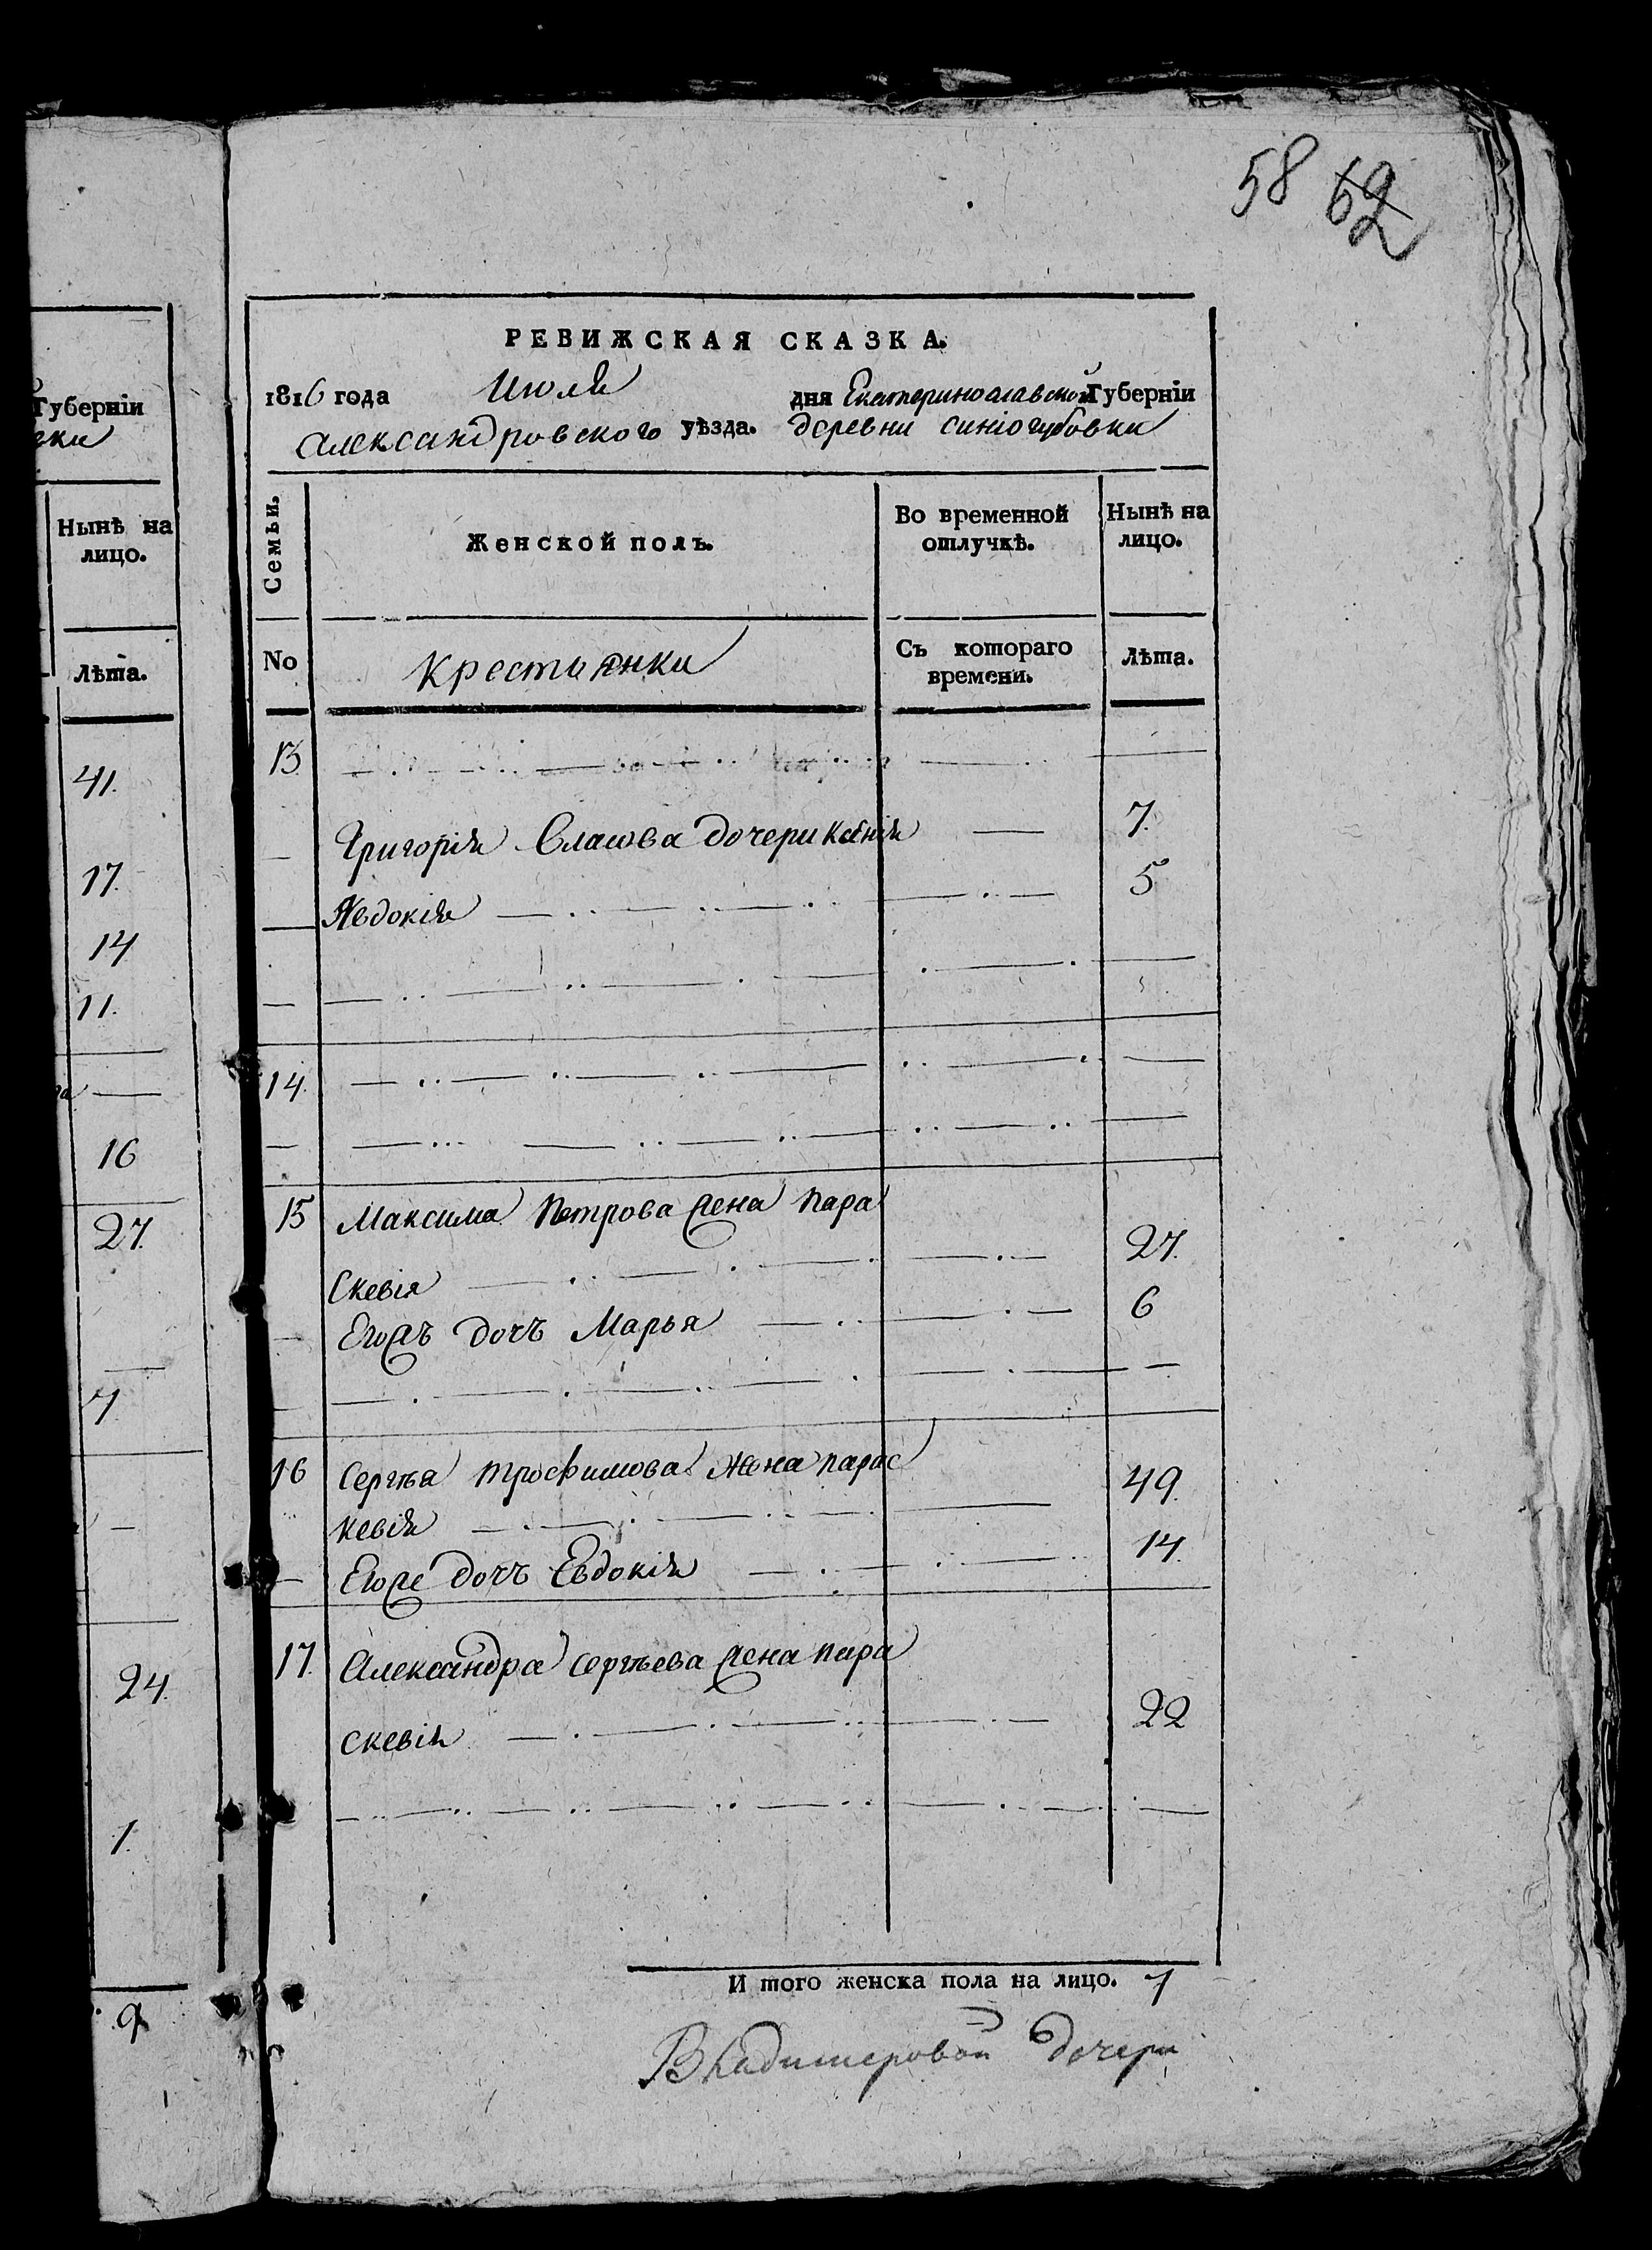 58 62
Губерніи
Нынѣ на
лицо.
Лѣта.
41.
17.
14
11.
16
27.
7
24.
1.
9
РЕВИЖСКАЯ СКАЗКА.
1816 года Июля дня Екатеринославской Губерніи
Александровского уѣзда. деревни синіогубовки
Семьи.
Женской полъ.
Во временной
отлучкѣ.
Нынѣ на
лицо.
No
Крестьянки
Съ котораго
времени.
Лѣта.
13
Григорія Власова дочери Ксенія 7.
Явдокія 5
14.
15 Максима Петрова жена Пара
скевія 27.
Егожъ дочъ Марья 6
16 Сергѣя трофимова жена парас
кевія 49.
Егоже дочъ Евдокія 14.
17. Александра сергѣева жена пара
скевія 22
И того женска пола на лицо. 7
Владимеровой дочери